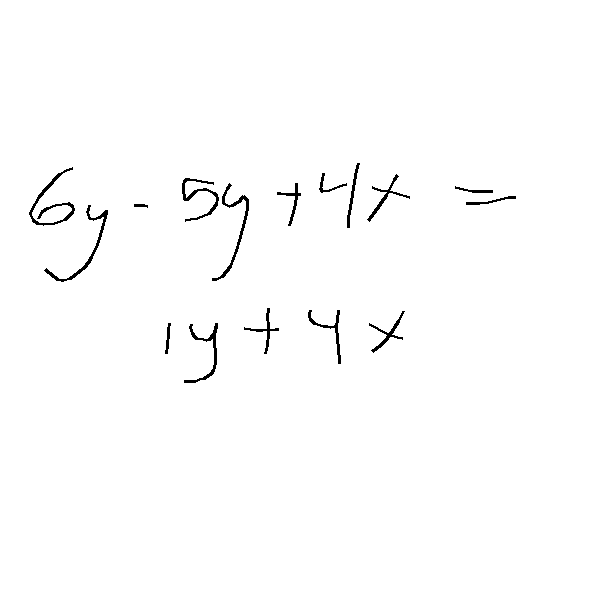 6y - 5y + 4x =
1y + 4x